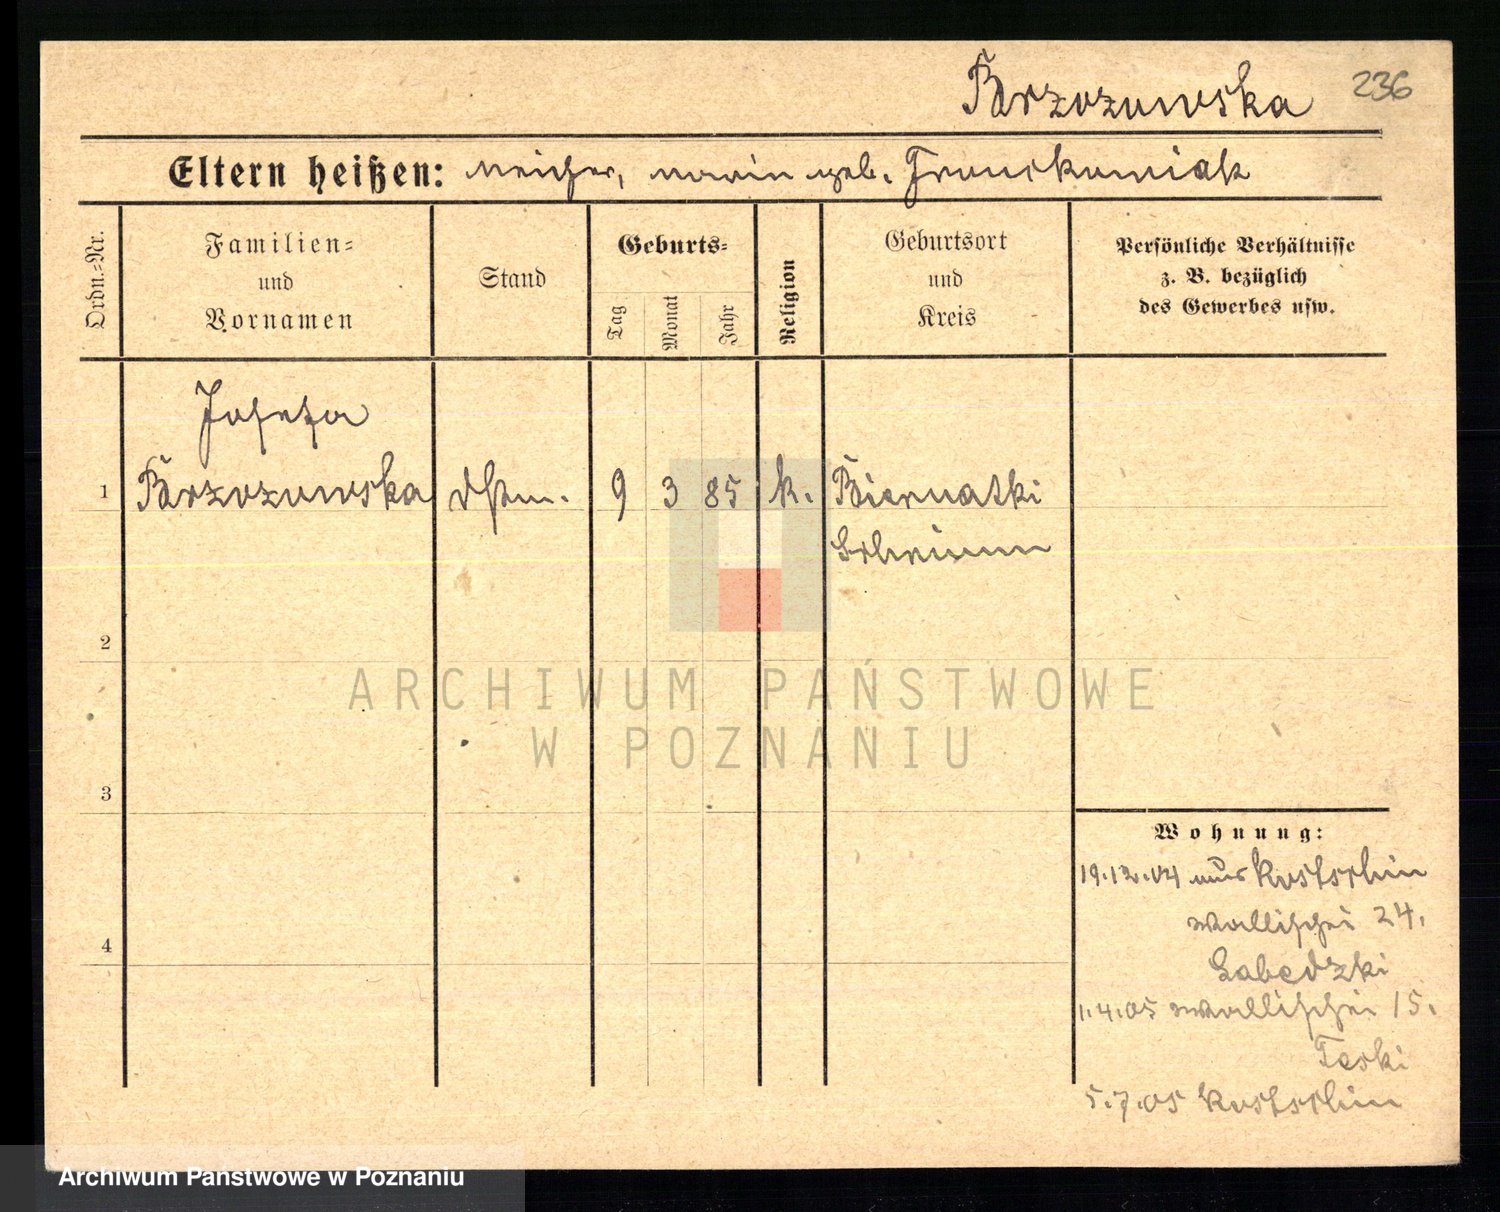 Brzozowska 236
Eltern heißen: geb. Franckowiak
Ordn.=Nr.
Familien=
und
Vornamen
Stand
Geburts=
Tag
Monat
Jahr
Religion
Geburtsort
und
Kreis
Persönliche Verhältnisse
z. B. bezüglich
des Gewerbes usw.
Josefa
1 Brzozowska dstm. 9 3 85 k. Biernatki
Schrimm
2
3
4
Wohnung:
19.12.04 aus Kostschin
Wallischei 24.
Labedzki
1.4.05 Wallischei 15.
Teski
5.7.05 Kostschin
ARCHIWUM PAŃSTWOWE
W POZNANIU
Archiwum Państwowe w Poznaniu